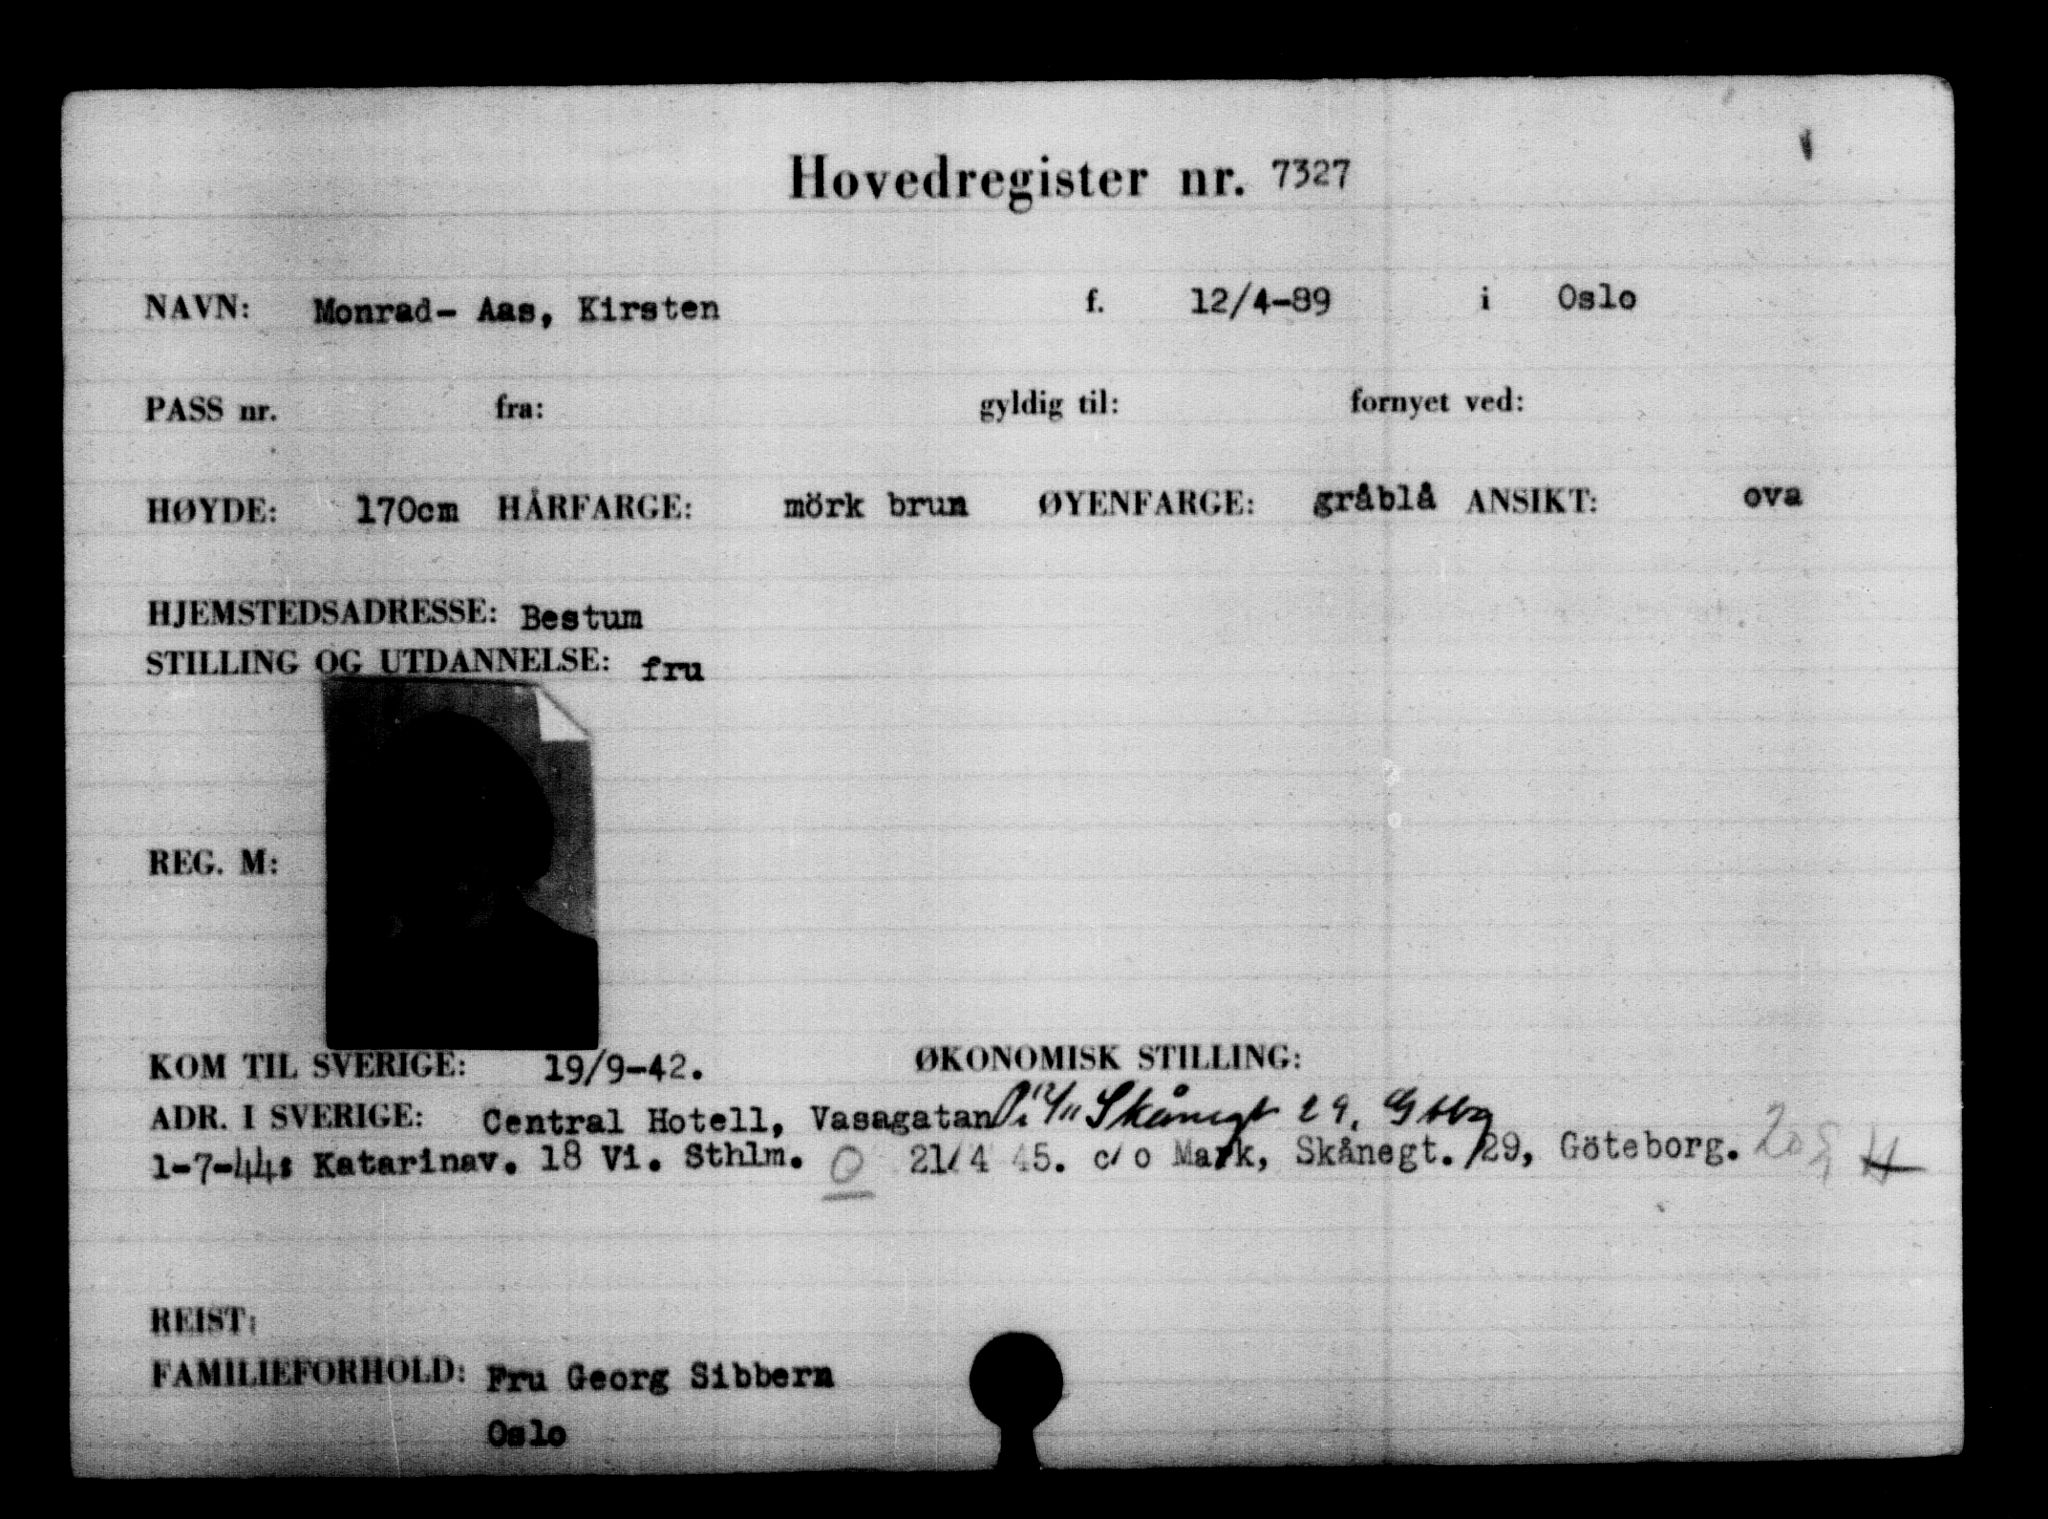 Hovedregister nr. 7327
NAVN: Monrad- Aas, Kirsten f. 12/4-89 i Oslo
PASS nr. fra: gyldig til: fornyet ved:
HØYDE: 170cm HÅRFARGE: mörk brun ØYENFARGE: gråblå ANSIKT: ova
HJEMSTEDSADRESSE: Bestum
STILLING OG UTDANNELSE: fru
REG. M:
KOM TIL SVERIGE: 19/9-42. ØKONOMISK STILLING:
ADR. I SVERIGE: Central Hotell, Vasagatan Skånegt 29, Gtbg
1-7-44: Katarinav. 18 Vi. Sthlm. O 21/4 45. c/o Mark, Skånegt. 29, Göteborg.
REIST:
FAMILIEFORHOLD: Fru Georg Sibbern
Oslo